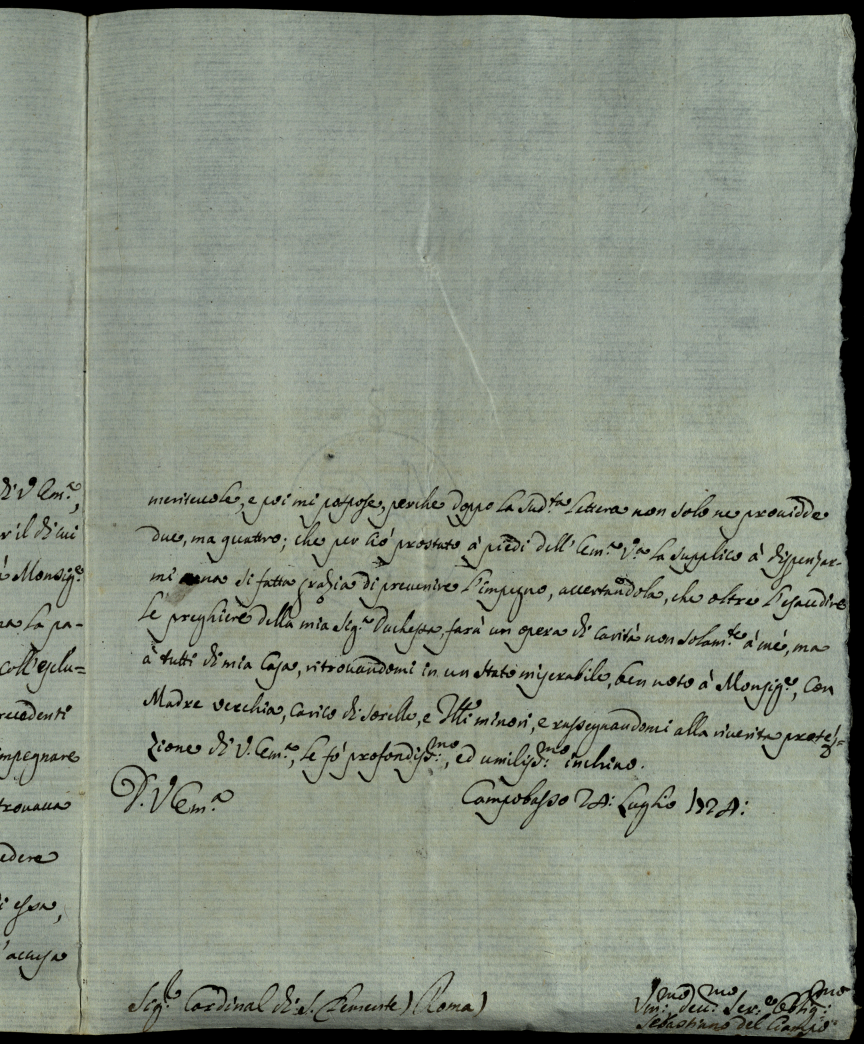 di V. Em.ª,
r il di cui
à Monsig.ʳ
na la pa-
coll'esclu=
recedenti
impegnare
trovava
edere
di essa,
l'accusa
meritevole, e poi mi pospose, perche doppo la sud.ᵗᵃ lettera non solo ne providde
due, ma quattro; che per ciò prostrato à piedi dell'Em.ª V.ª la supplico à dispenzar-
mi una si fatta grazia di prevenire l'impegno, accertandola, che oltre l'esaudire
le preghiere della mia Sig.ª Duchessa, farà un opera di carità non solam.ᵗᵉ à mé, ma
à tutti di mia Casa, ritrovandomi in un stato miserabile, ben noto à Monsig.ʳᵉ, con
Madre vecchia, carico di sorelle, e F̃lli minori, e rassegnandomi alla riverita protez=
zione di V. Em.ª, le fó profondiss.ᵐᵒ, ed umiliss.ᵐᵒ inchino.
D. V. Em.ª
Campobasso 24: Luglio 1724:
Sig.ʳ Cardinal di S. Clemente) (Roma)
Um:ᵐᵒ Dev:ᵐᵒ Ser:ᵉ Oblig:ᵐᵒ
Sebastiano del